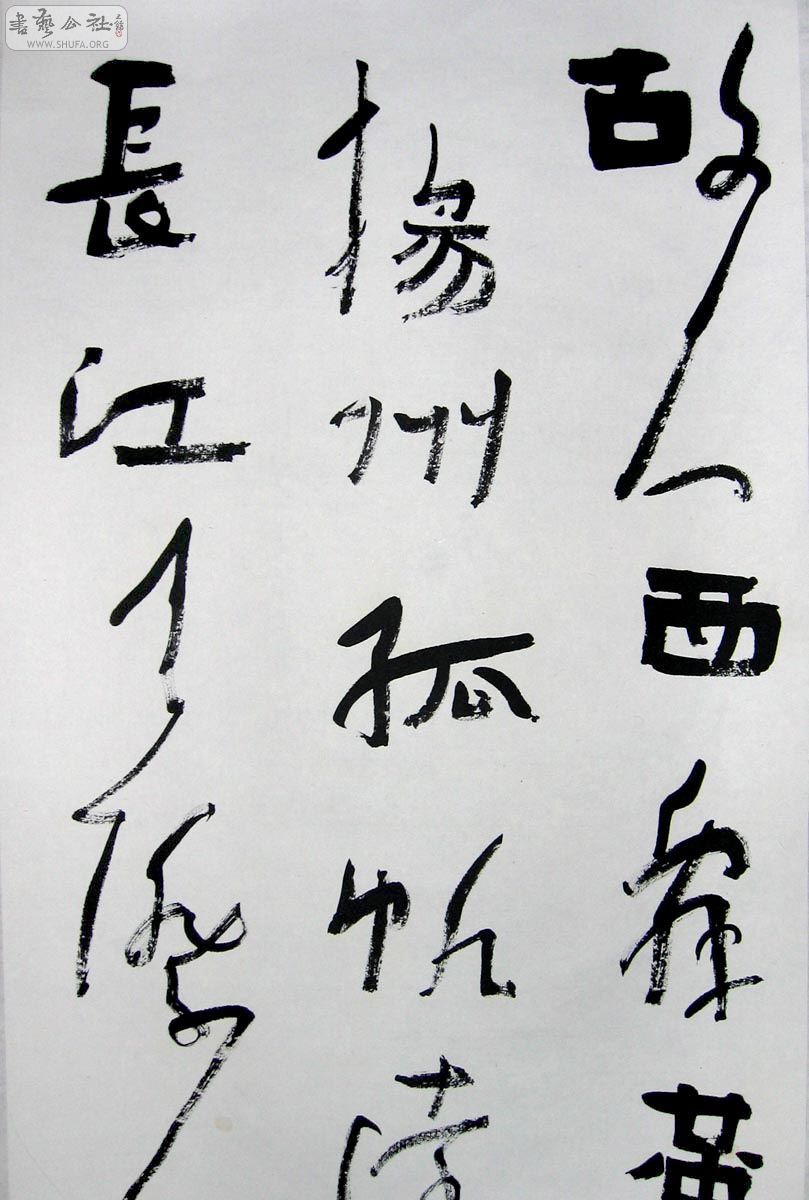 書藝公社
WWW.SHUFA.ORG
故人西辭黄
揚州孤帆遠
長江天際